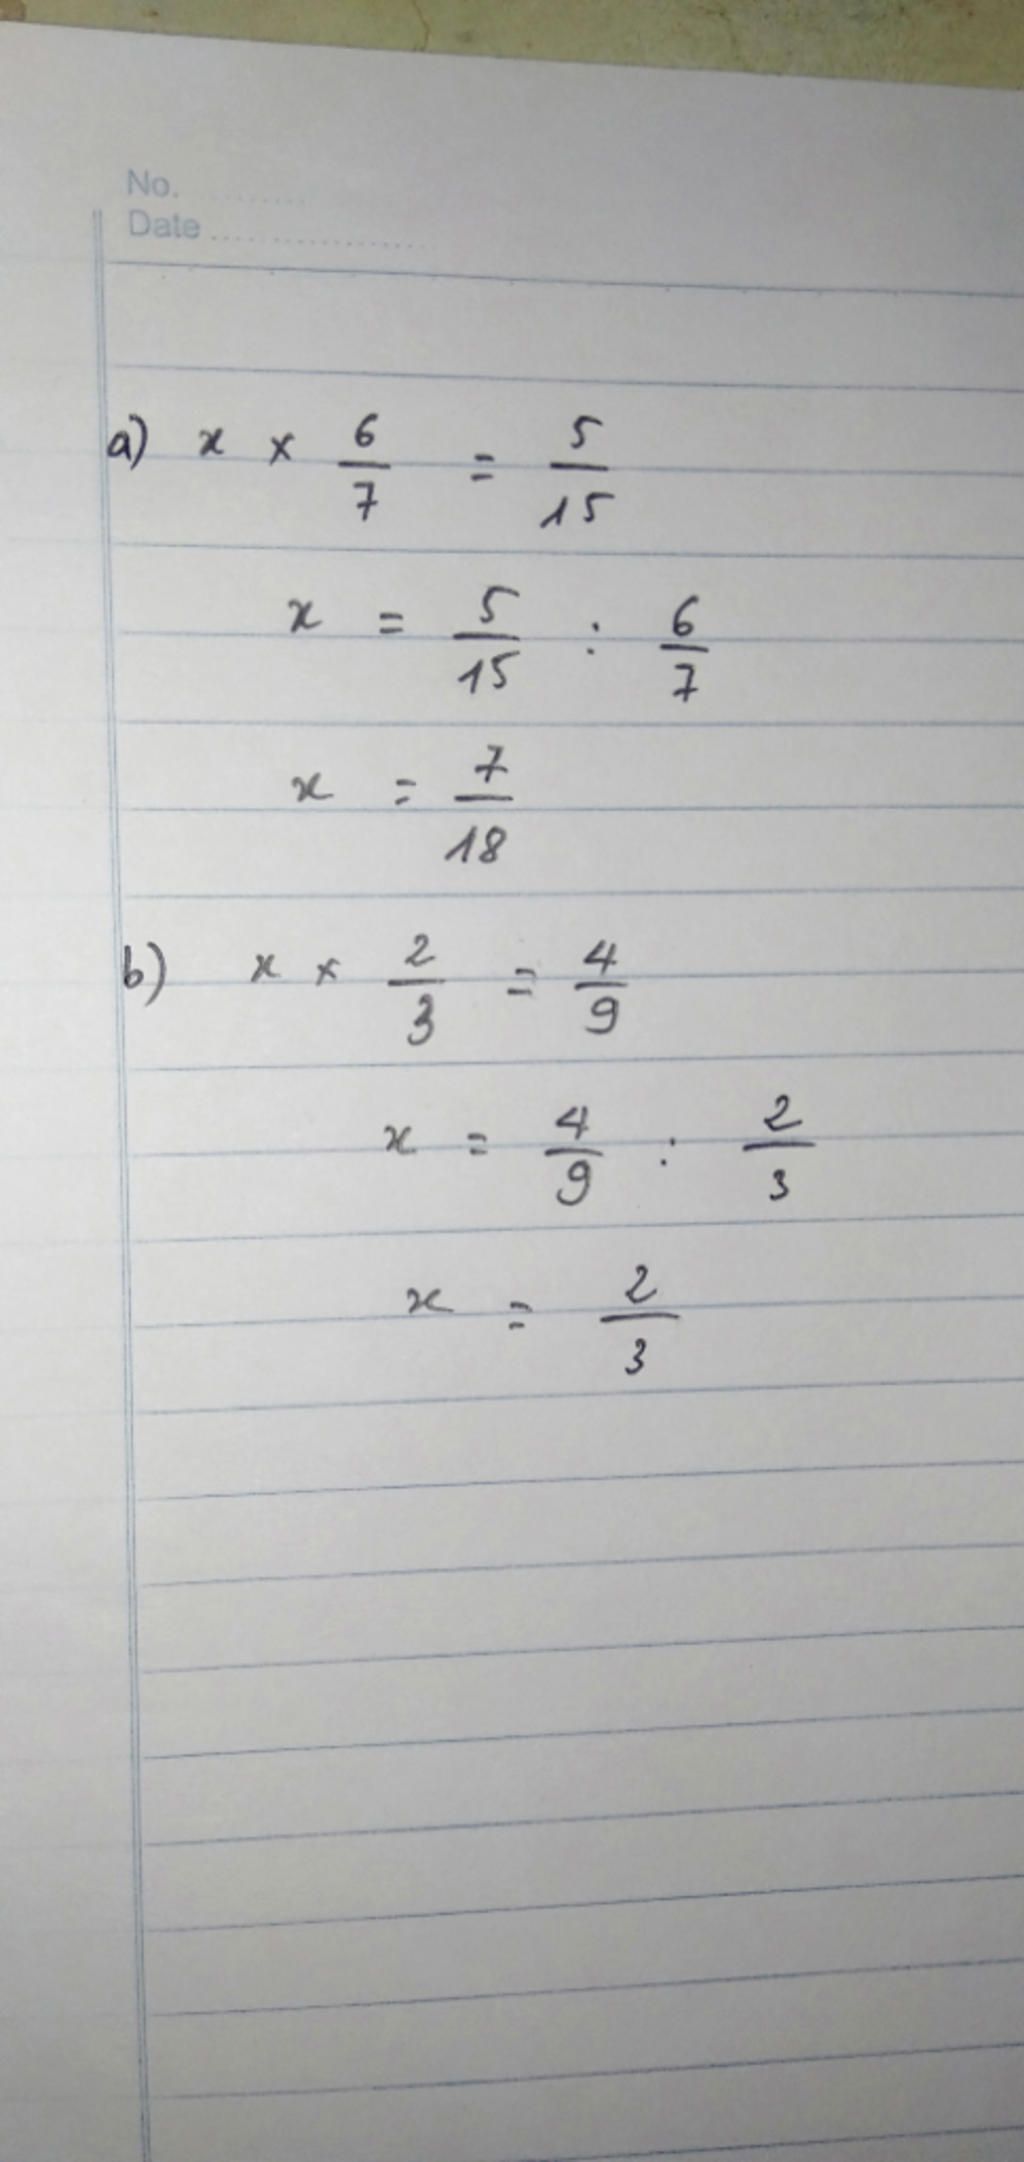 No. ..........
Date ..................
a) x × 6/7 = 5/15
x = 5/15 : 6/7
x = 7/18
b) x × 2/3 = 4/9
x = 4/9 : 2/3
x = 2/3